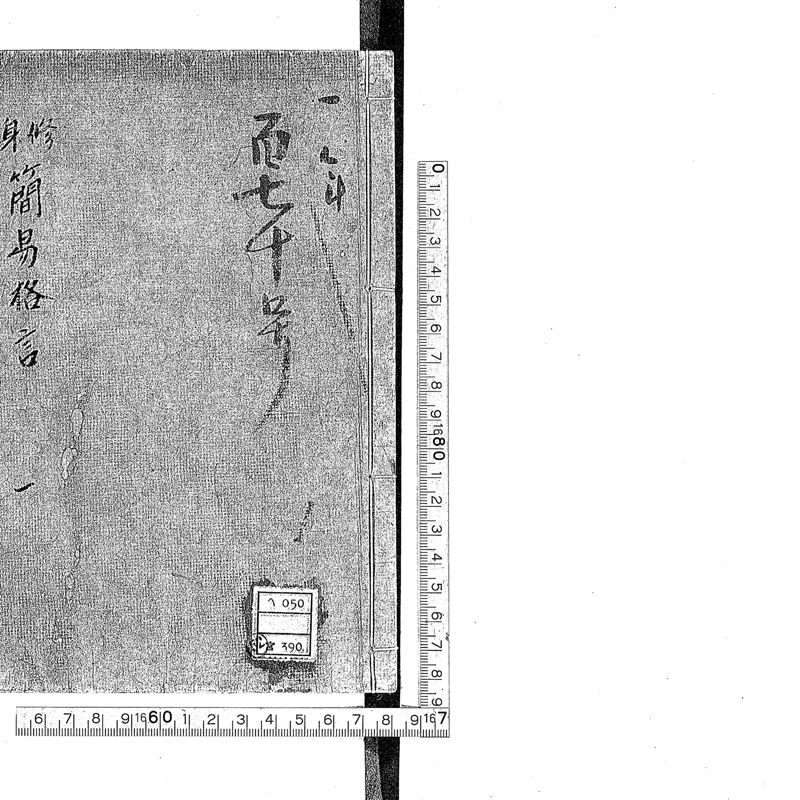 一
百七十号
修身
簡易格言 一
050
390
0 1 2 3 4 5 6 7 8 9 16 80 1 2 3 4 5 6 7 8 9
6 7 8 9 16 60 1 2 3 4 5 6 7 8 9 16 7